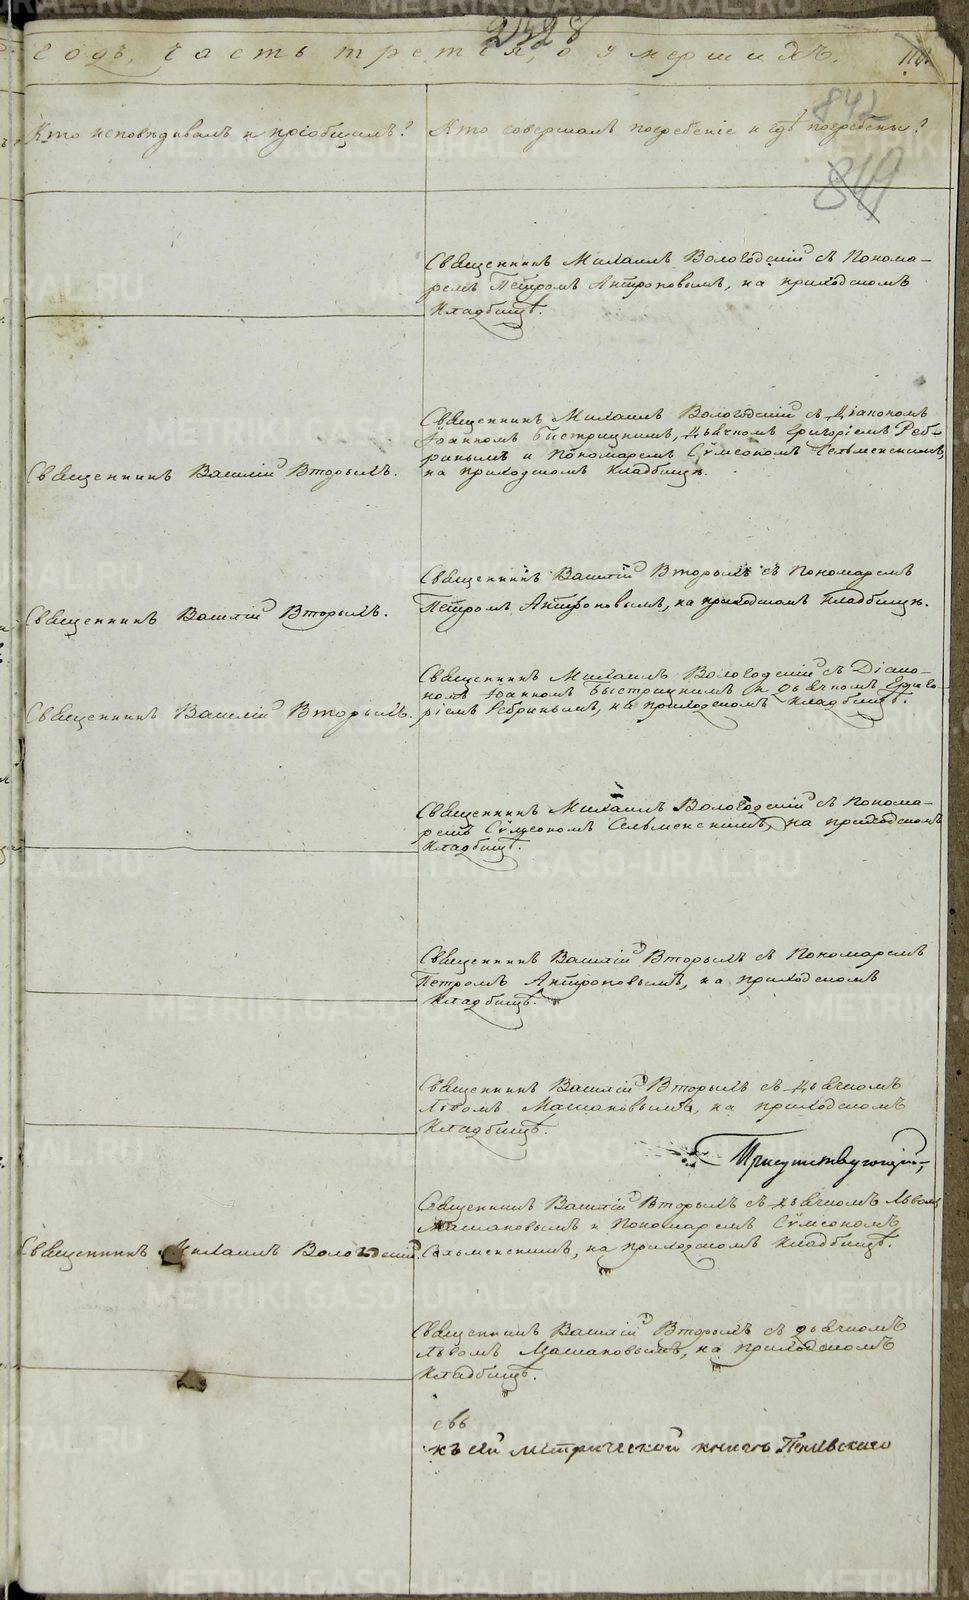 2428
годъ, часть третія, о умершихъ.
842
849
Кто исповѣдывалъ и пріобщалъ?
Кто совершалъ погребеніе и гдѣ погребены?
Священникъ Михаилъ Вологодскій съ Понома-
ремъ Петромъ Антроповымъ, на приходскомъ
кладбищѣ.
Священникъ Василій Вторыхъ.
Священникъ Михаилъ Вологодскій съ Діакономъ
Іоанномъ Быстрицкимъ, Дьячкомъ Григоріемъ Реб-
ринымъ и Пономаремъ Сѵмеономъ Сельменскимъ,
на приходскомъ кладбищѣ.
Священникъ Василій Вторыхъ.
Священникъ Василій Вторыхъ съ Пономаремъ
Петромъ Антроповымъ, на приходскомъ кладбищѣ.
Священникъ Василій Вторыхъ.
Священникъ Михаилъ Вологодскій съ Діако-
номъ Іоанномъ Быстрицкимъ и Дьячкомъ Григо-
ріемъ Ребринымъ, на приходскомъ кладбищѣ.
Священникъ Михаилъ Вологодскій съ Понома-
ремъ Сѵмеономъ Сельменскимъ, на приходскомъ
кладбищѣ.
Священникъ Василій Вторыхъ съ Пономаремъ
Петромъ Антроповымъ, на приходскомъ
кладбищѣ.
Священникъ Василій Вторыхъ съ Дьячкомъ
Львомъ Маслаковымъ, на приходскомъ
кладбищѣ.
Присутствующій,
Священникъ Михаилъ Вологодскій.
Священникъ Василій Вторыхъ съ Дьячкомъ Львомъ
Маслаковымъ и Пономаремъ Сѵмеономъ
Сельменскимъ, на приходскомъ кладбищѣ.
Священникъ Василій Вторыхъ съ Дьячкомъ
Львомъ Маслаковымъ, на приходскомъ
кладбищѣ.
къ сей метрической книгѣ
METRIKI.GASO-URAL.RU